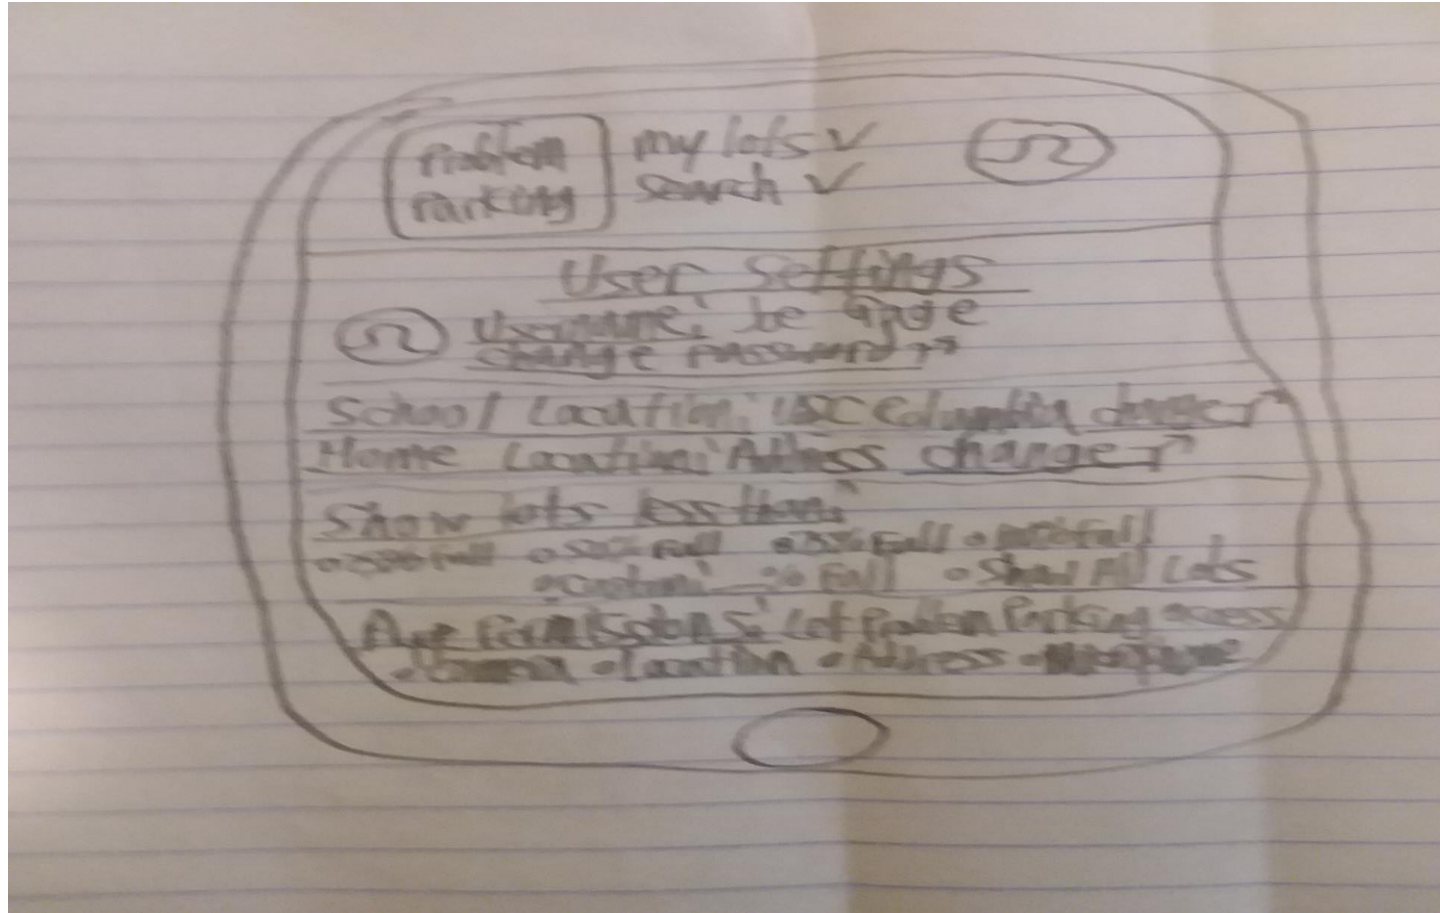 Problem Parking
my lots ✓
search ✓
User Settings
Username:
change password
School Location: USC Columbia change
Home Location: Address change
Show lots less than:
50% Full 75% Full Full
Custom: % Full Show All Lots
App Permissions: Let Problem Parking access
Camera Location Address